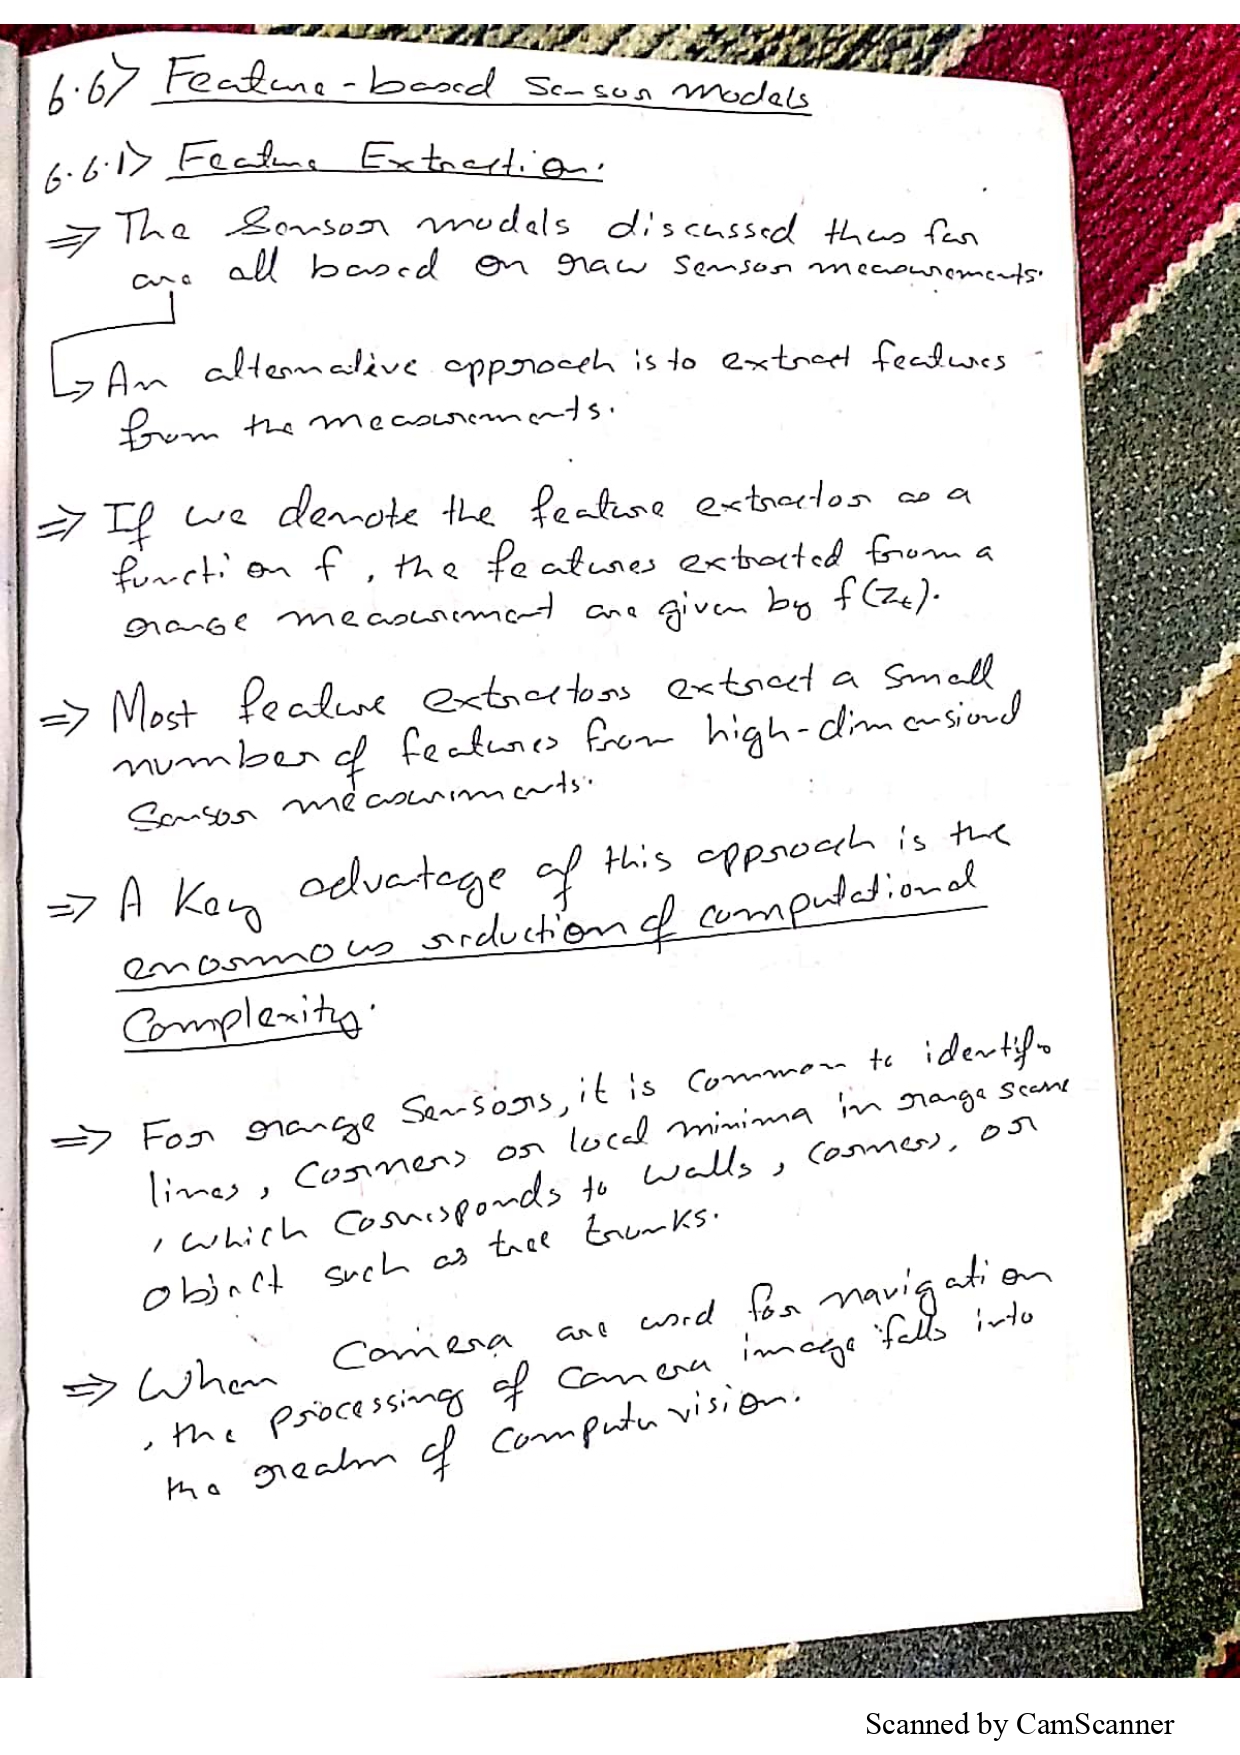 6.6> Feature-based Sensor Models
6.6.1> Feature Extraction:
⇒ The Sensor models discussed thus far
are all based on raw sensor measurements.
↳ An alternative approach is to extract features
from the measurements.
⇒ If we denote the feature extractor as a
function f, the features extracted from a
range measurement are given by f(zₜ).
⇒ Most feature extractors extract a small
number of features from high-dimensional
Sensor measurements.
⇒ A Key advantage of this approach is the
enormous reduction of computational
Complexity.
⇒ For range Sensors, it is common to identify
lines, Corners or local minima in range scans
, which Corresponds to walls, corners, or
object such as tree trunks.
⇒ When Camera are used for navigation
, the processing of camera image falls into
the realm of computer vision.
Scanned by CamScanner